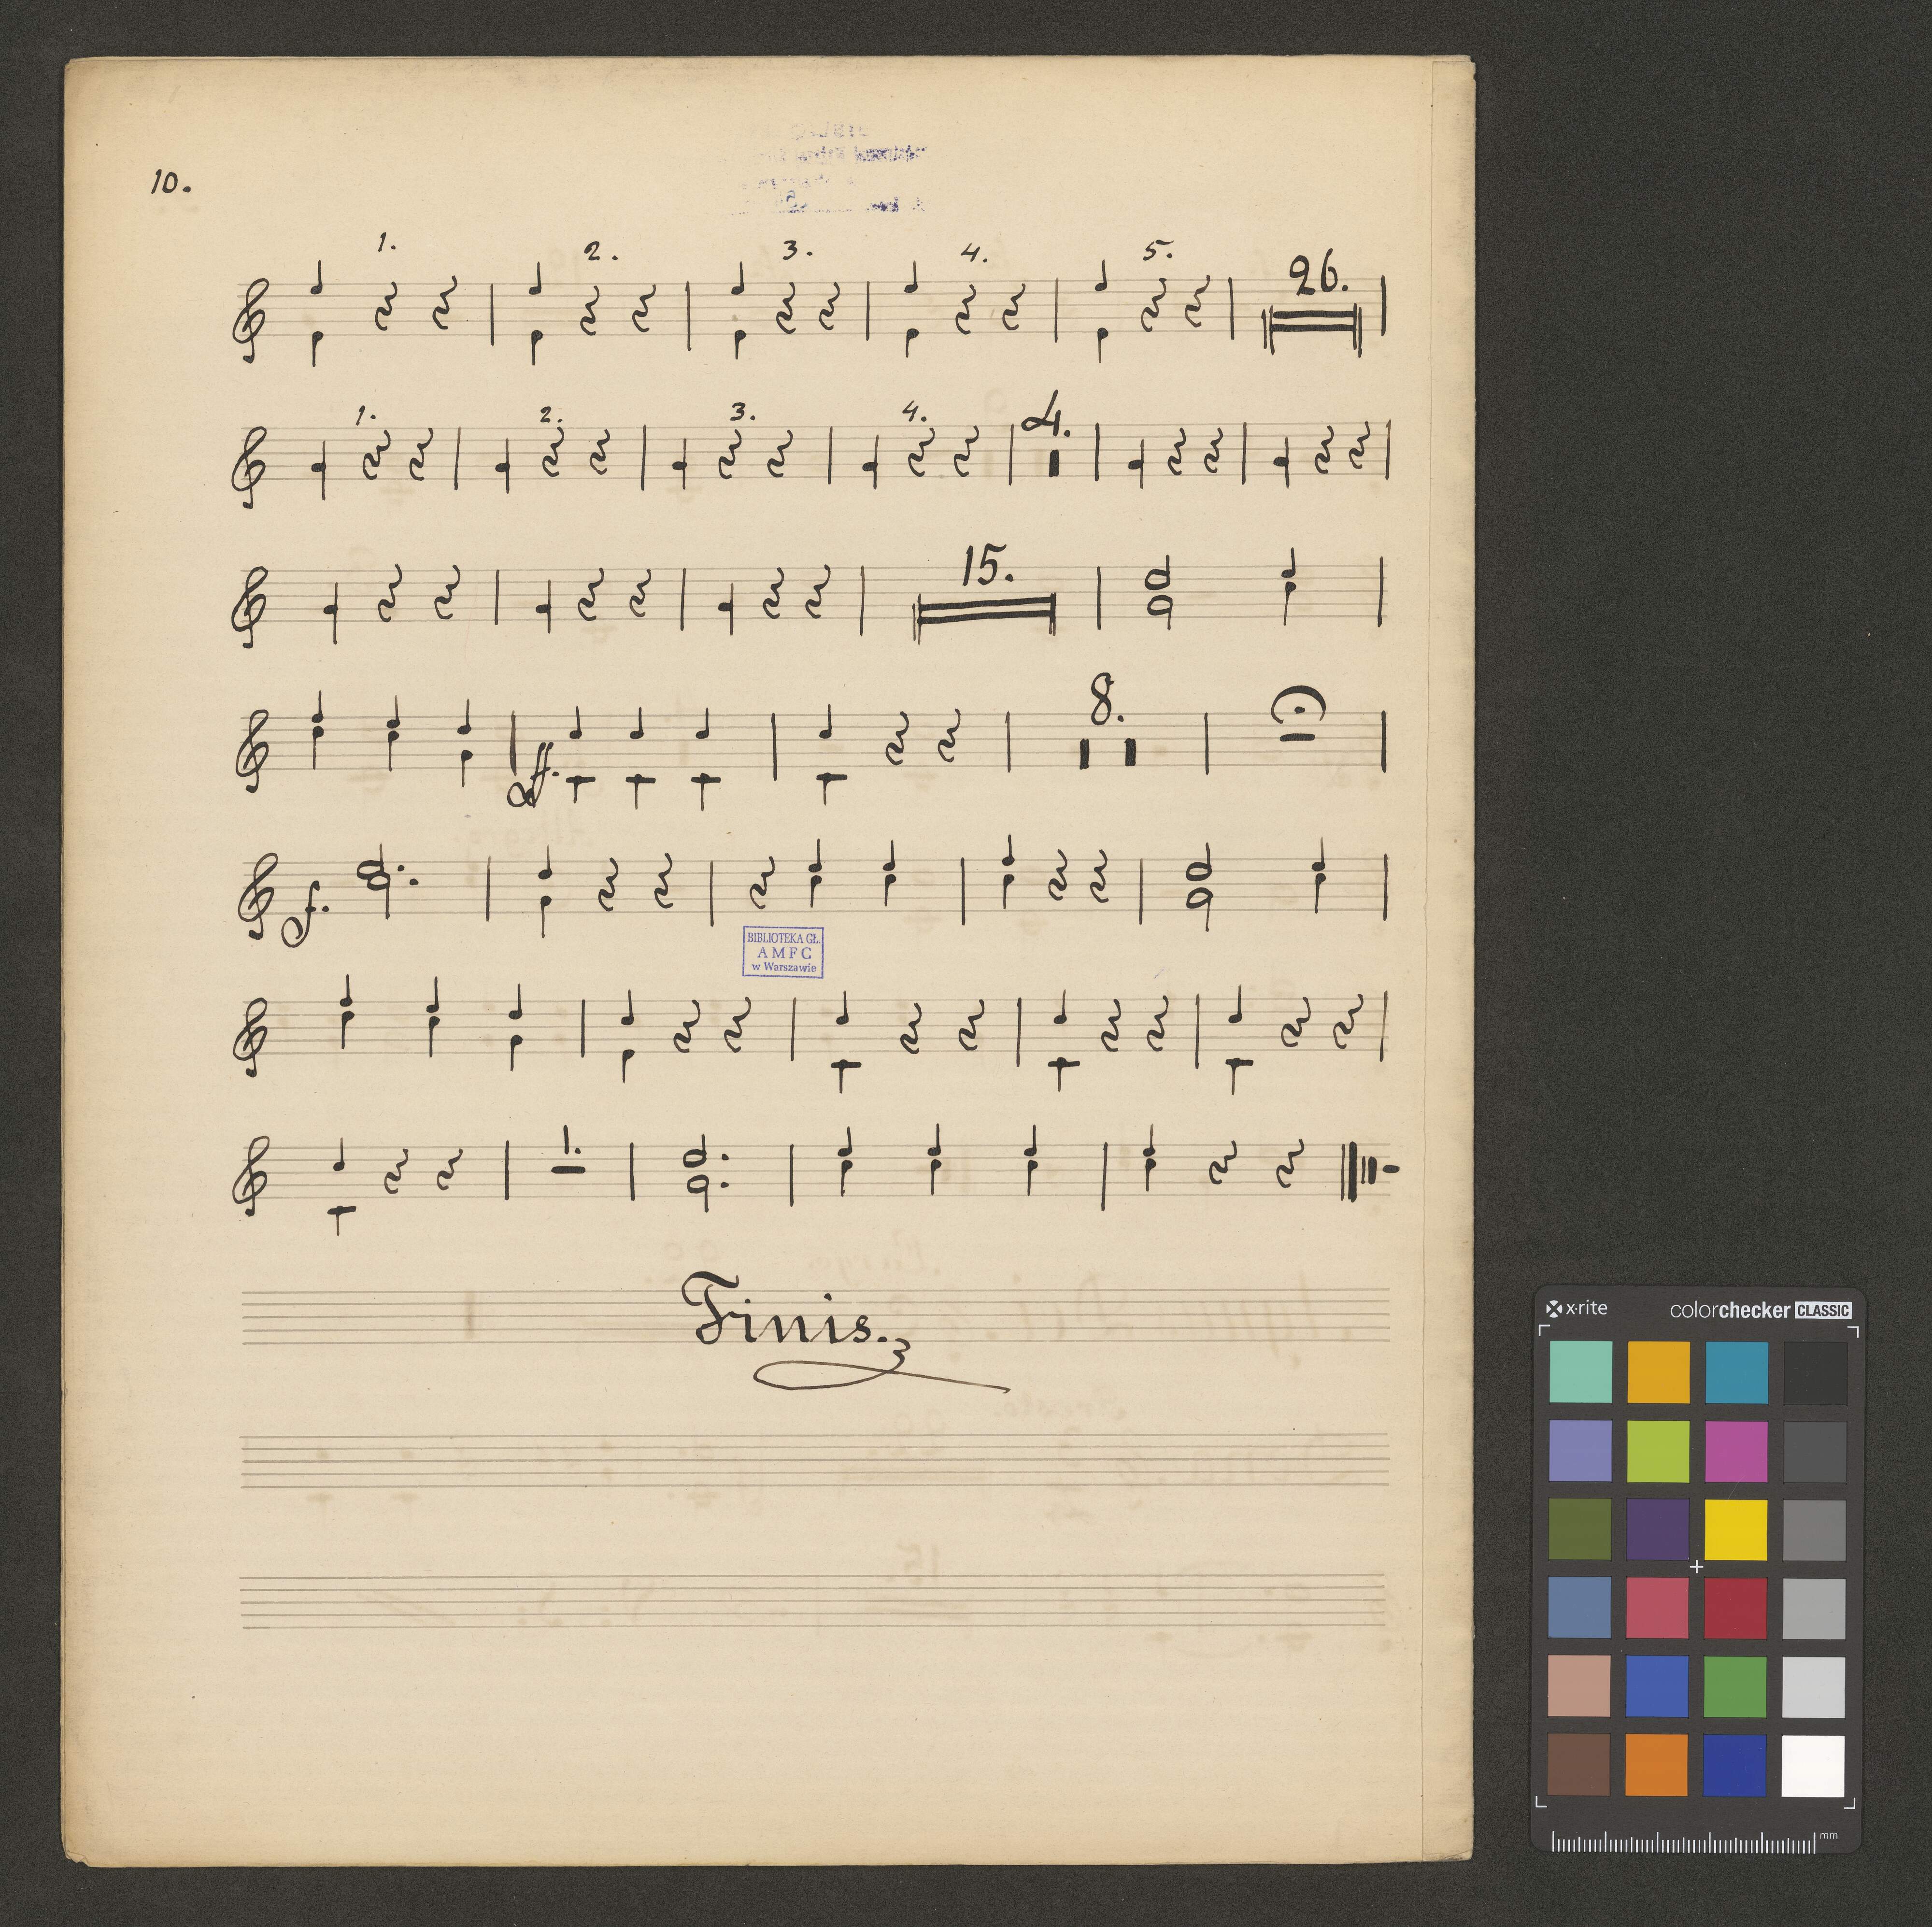 10.
1. 2. 3. 4. 5. 26.
1. 2. 3. 4. 4.
15.
ff. 8.
f.
BIBLIOTEKA GŁ.
A M F C
w Warszawie
1.
Finis.
x-rite colorchecker CLASSIC
mm